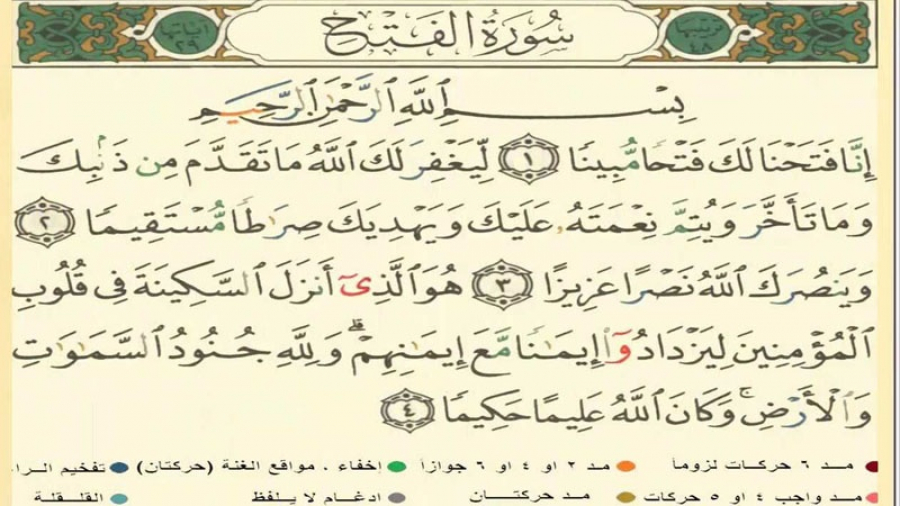 ترتيبها ٤٨ سُورَةُ الْفَتْحِ آياتها ٢٩
بِسْمِ اللَّهِ الرَّحْمَٰنِ الرَّحِيمِ
إِنَّا فَتَحْنَا لَكَ فَتْحًا مُّبِينًا ١ لِّيَغْفِرَ لَكَ اللَّهُ مَا تَقَدَّمَ مِن ذَنۢبِكَ
وَمَا تَأَخَّرَ وَيُتِمَّ نِعْمَتَهُۥ عَلَيْكَ وَيَهْدِيَكَ صِرَٰطًا مُّسْتَقِيمًا ٢
وَيَنصُرَكَ اللَّهُ نَصْرًا عَزِيزًا ٣ هُوَ الَّذِىٓ أَنزَلَ السَّكِينَةَ فِى قُلُوبِ
الْمُؤْمِنِينَ لِيَزْدَادُوٓا۟ إِيمَٰنًا مَّعَ إِيمَٰنِهِمْ ۗ وَلِلَّهِ جُنُودُ السَّمَٰوَٰتِ
وَالْأَرْضِ ۚ وَكَانَ اللَّهُ عَلِيمًا حَكِيمًا ٤
مــد ٦ حركـات لزوماً مـد ٢ او ٤ او ٦ جوازاً إخفاء ، مواقع الغنة (حركتان) تفخيم الـرا
مـد واجب ٤ او ٥ حركات مد حركتــان ادغـام لا يـلـفـظ القـلـقـلة